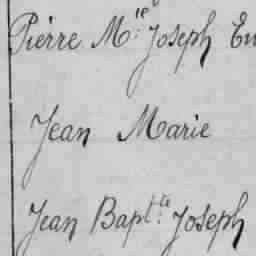 Pierre M.ie Joseph
Jean Marie
Jean Bapt.te Joseph